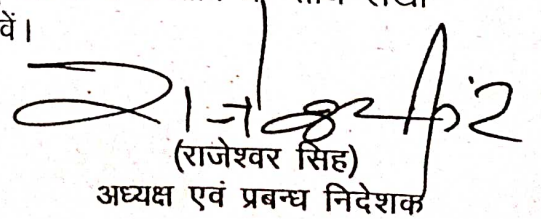 वें।
(राजेश्वर सिंह)
अध्यक्ष एवं प्रबन्ध निदेशक